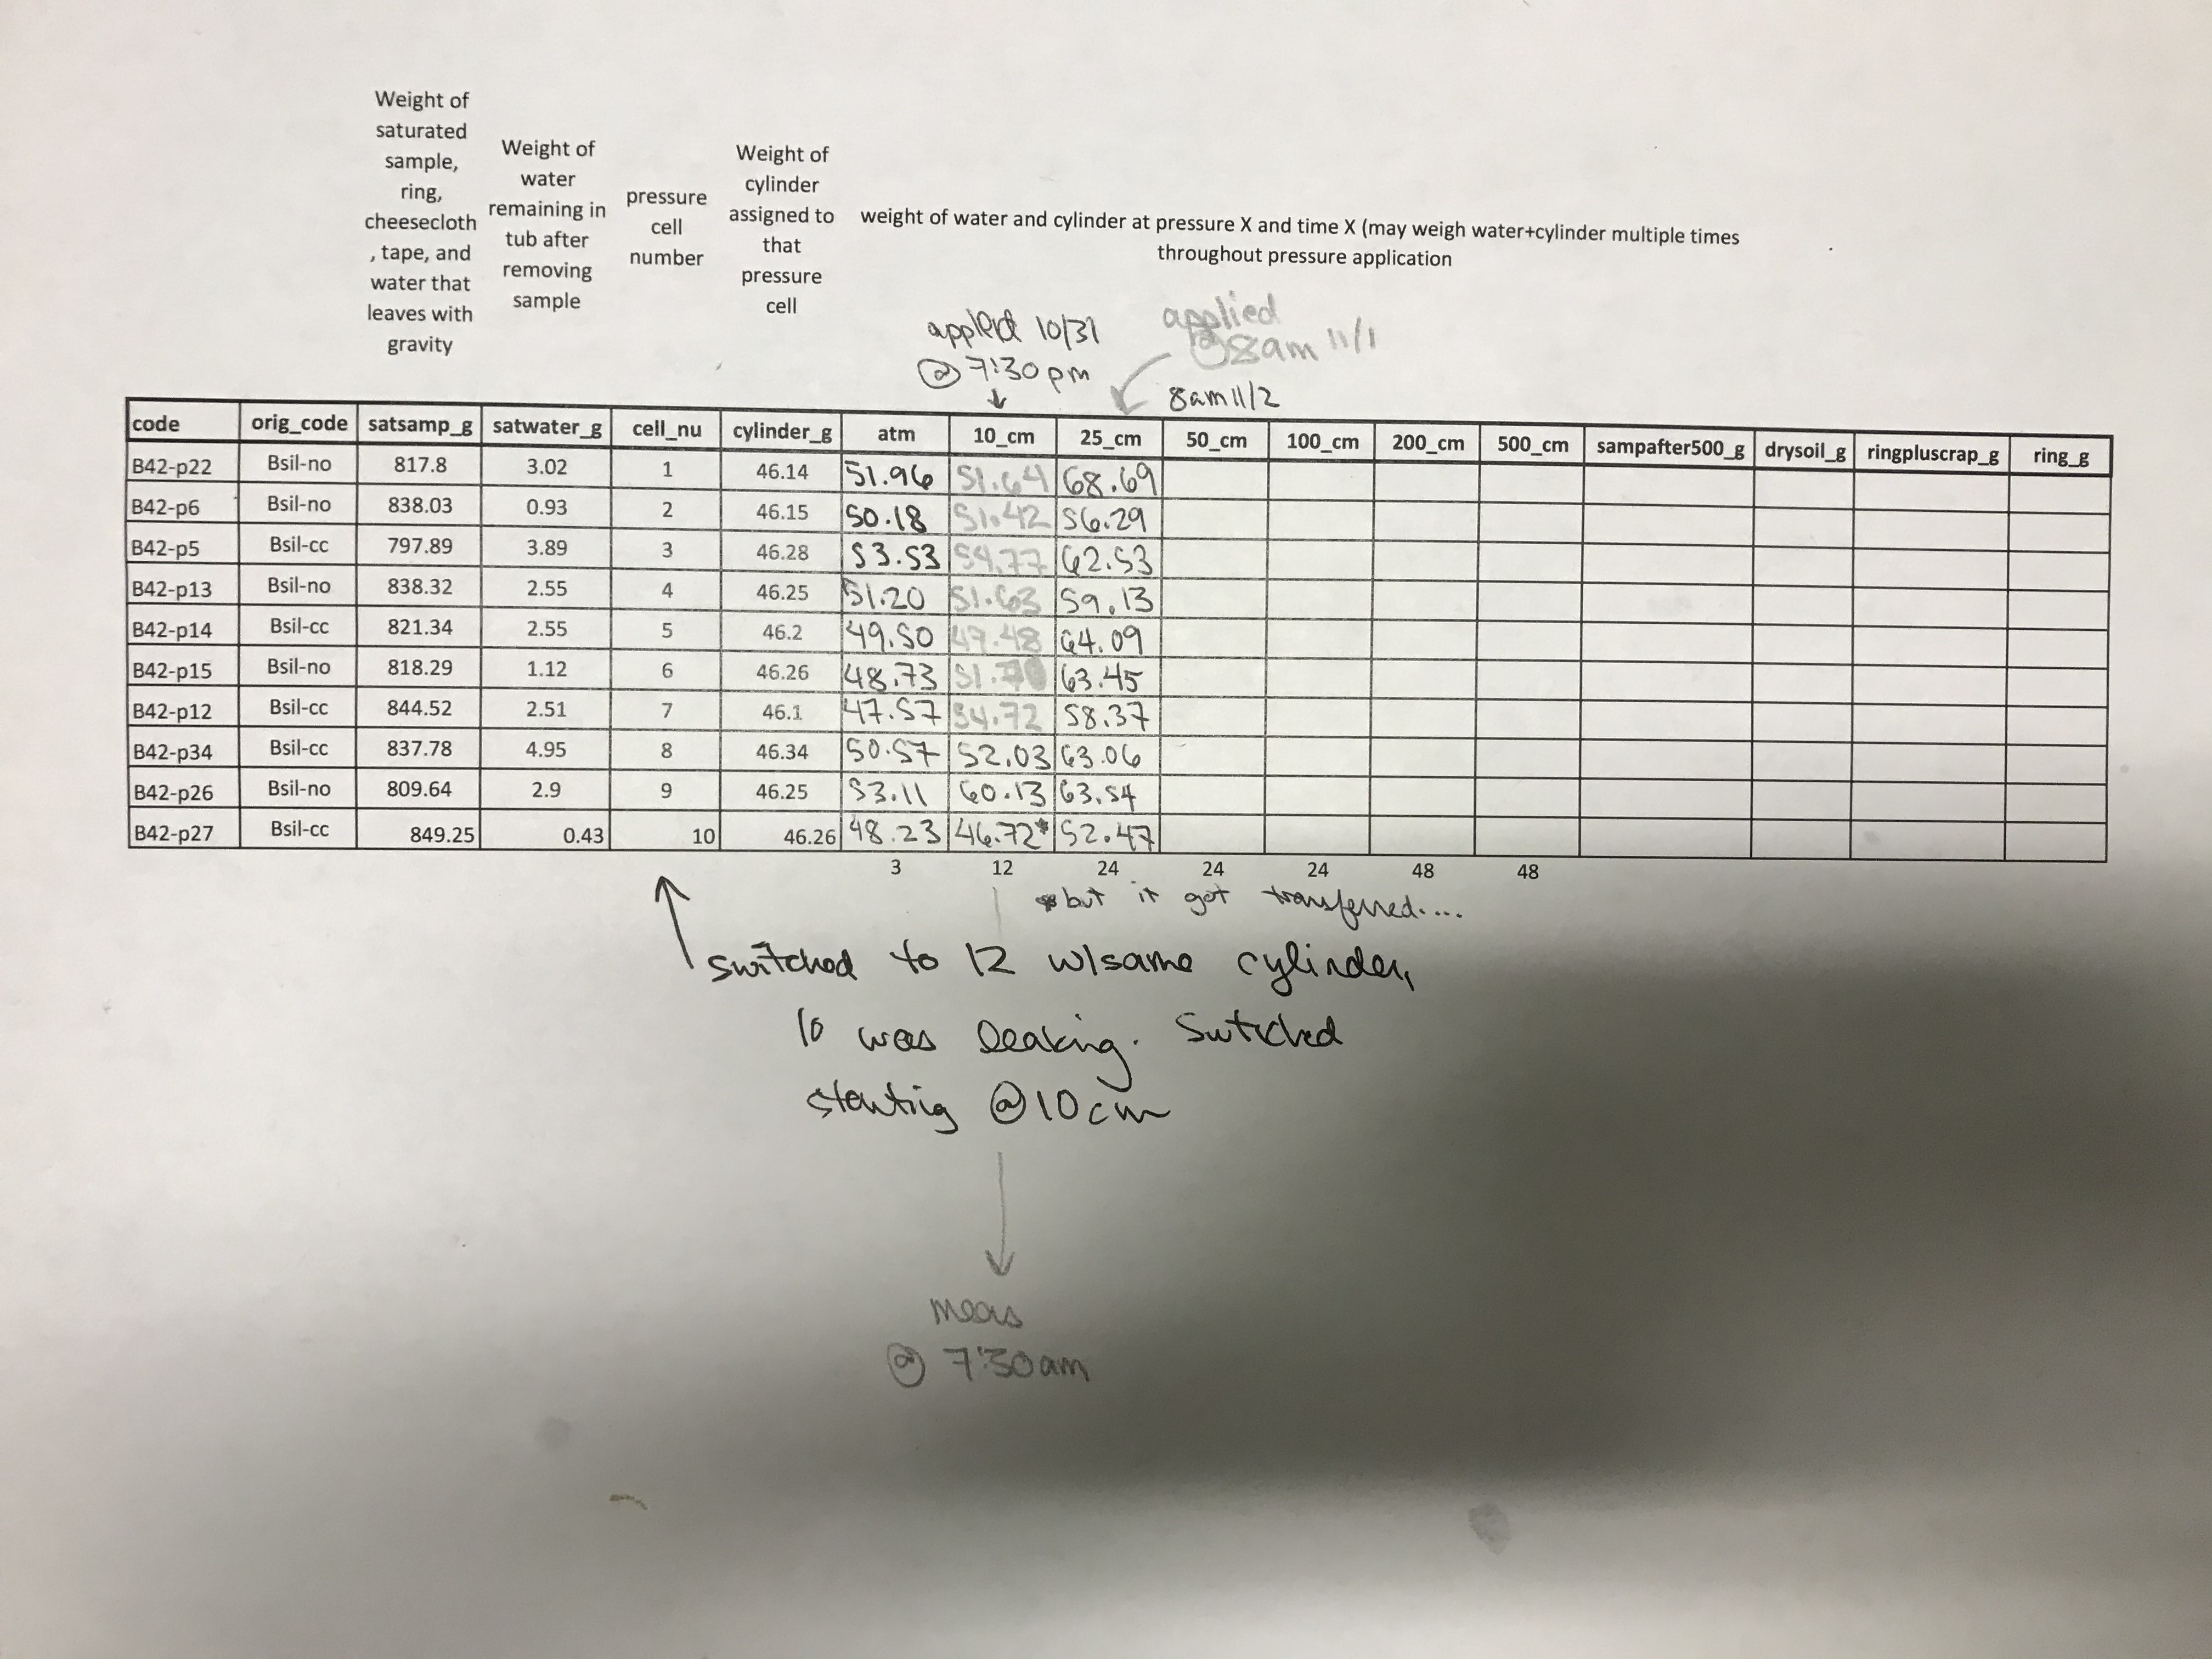 Weight of
saturated
sample,
ring,
cheesecloth
, tape, and
water that
leaves with
gravity
Weight of
water
remaining in
tub after
removing
sample
pressure
cell
number
Weight of
cylinder
assigned to
that
pressure
cell
weight of water and cylinder at pressure X and time X (may weigh water+cylinder multiple times
throughout pressure application
applied 10/31
@ 7:30 pm
applied
@8am 11/1
8am 11/2
code orig_code satsamp_g satwater_g cell_nu cylinder_g atm 10_cm 25_cm 50_cm 100_cm 200_cm 500_cm sampafter500_g drysoil_g ringpluscrap_g ring_g
B42-p22 Bsil-no 817.8 3.02 1 46.14 51.96 51.64 68.69
B42-p6 Bsil-no 838.03 0.93 2 46.15 50.18 51.42 56.29
B42-p5 Bsil-cc 797.89 3.89 3 46.28 53.53 54.77 62.53
B42-p13 Bsil-no 838.32 2.55 4 46.25 51.20 51.63 59.13
B42-p14 Bsil-cc 821.34 2.55 5 46.2 49.50 47.48 64.09
B42-p15 Bsil-no 818.29 1.12 6 46.26 48.73 63.45
B42-p12 Bsil-cc 844.52 2.51 7 46.1 47.57 54.72 58.37
B42-p34 Bsil-cc 837.78 4.95 8 46.34 50.57 52.03 63.06
B42-p26 Bsil-no 809.64 2.9 9 46.25 53.11 60.13 63.54
B42-p27 Bsil-cc 849.25 0.43 10 46.26 48.23 46.72* 52.47
3 12 24 24 24 48 48
* but it got transferred....
switched to 12 w/same cylinder,
10 was leaking. Switched
starting @10cm
meas
@ 7:30am